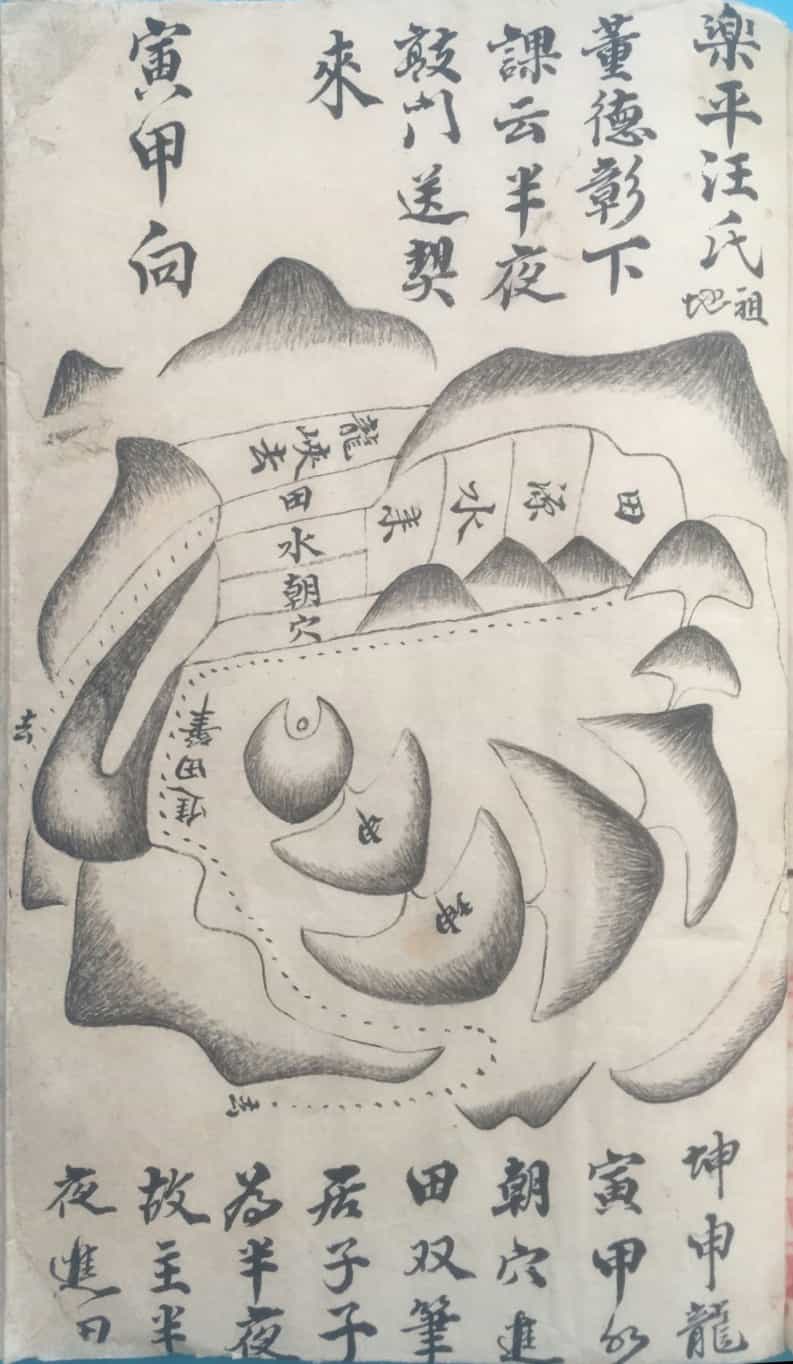 樂平汪氏
祖地
董德彰下
課云半夜
敲门送契
來
寅甲向
龍峽去
田水朝穴
田源水来
去
進田筆
去
坤申龍
寅甲水
朝穴進
田双筆
居子子
為半夜
故主半
夜進田